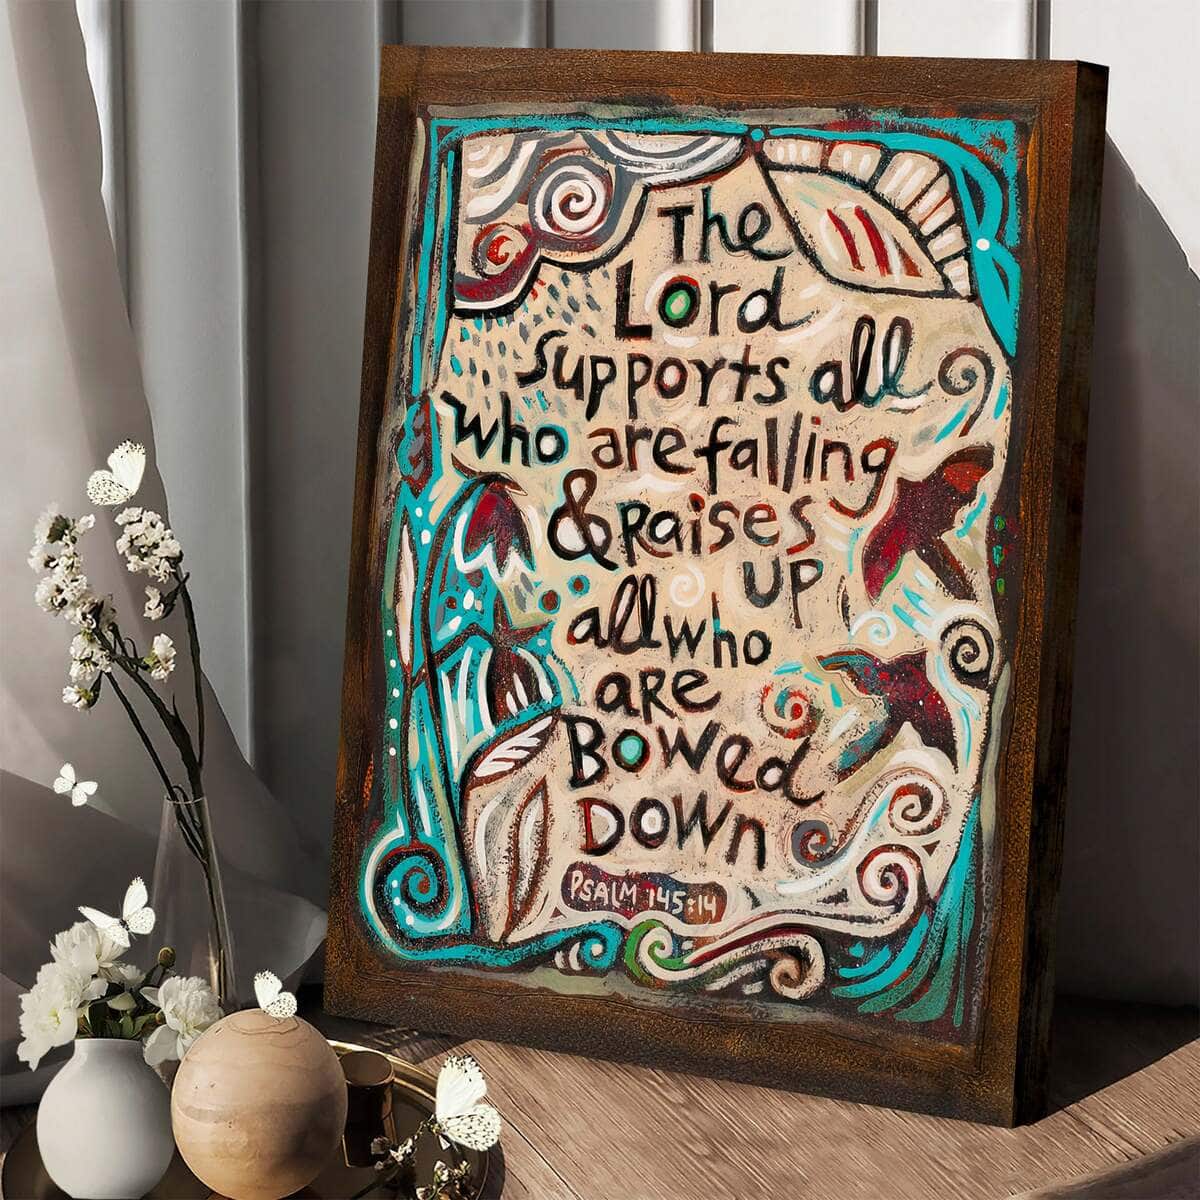 The
Lord
Supports all
who are falling
& Raises
up
all who
are
Bowed
Down
Psalm 145:14